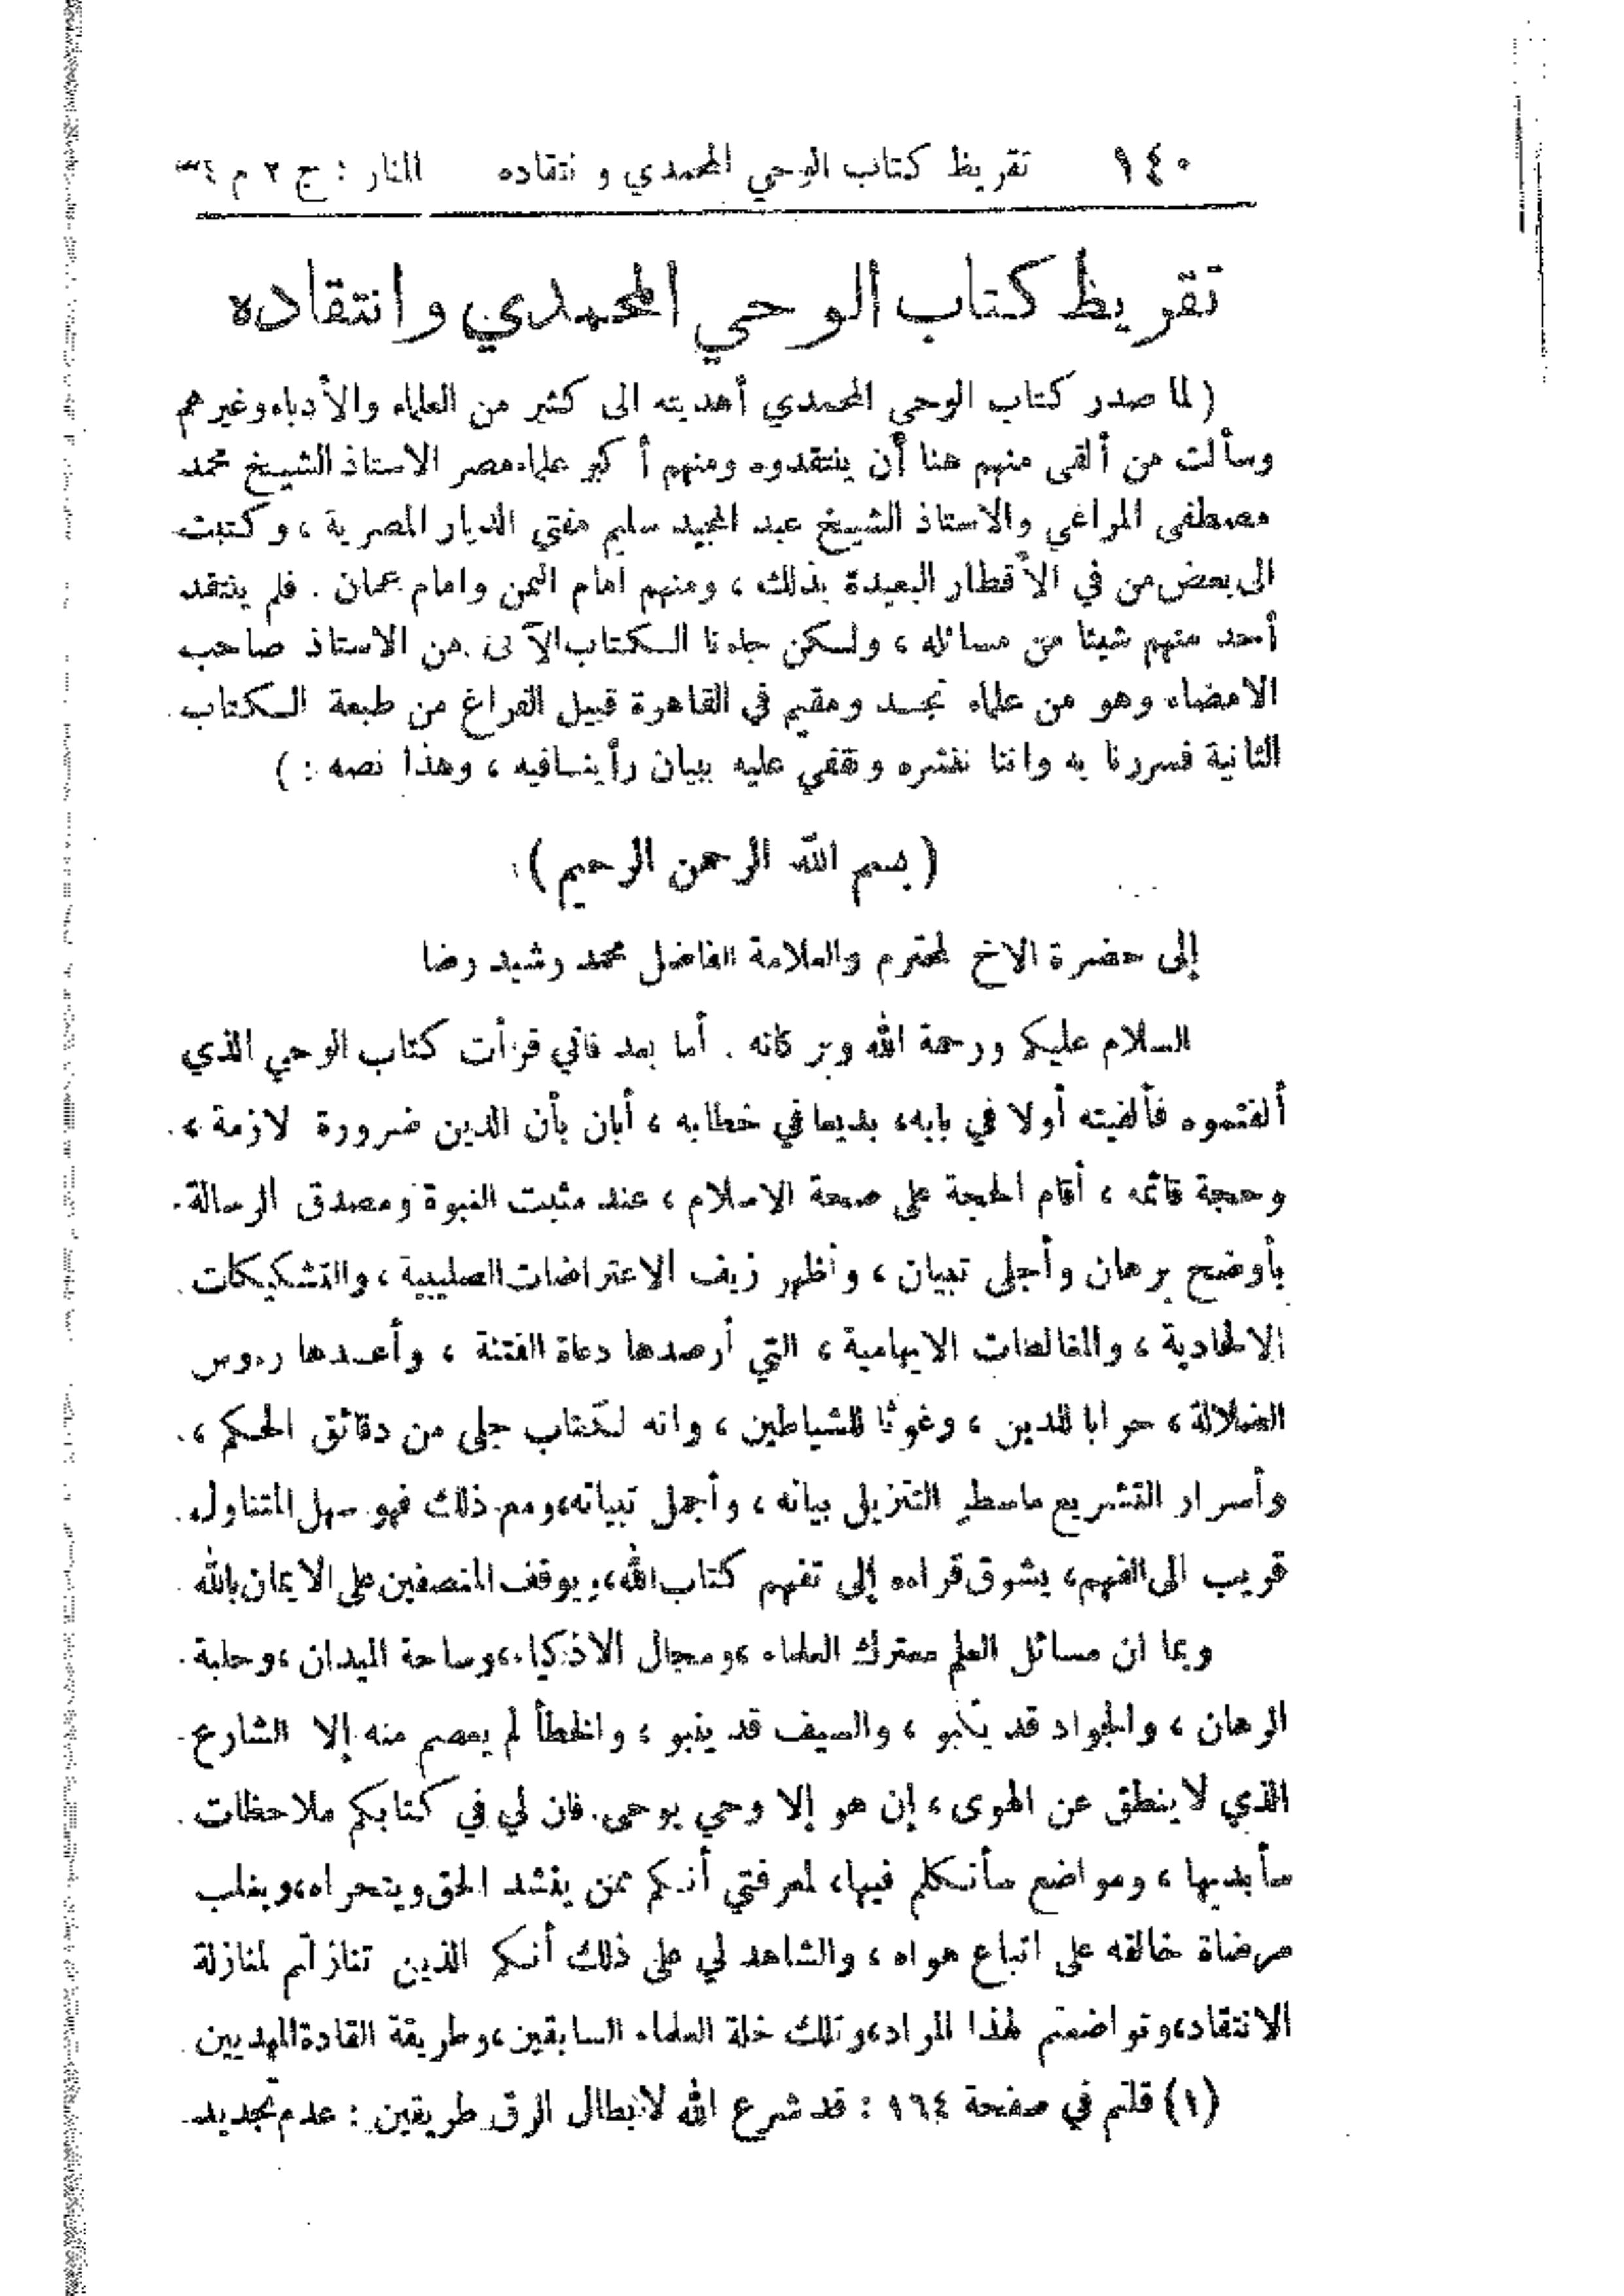 ١٤٠ تقريظ كتاب الوحي المحمدي وانتقاده المنار : ج ٢ م ٣٤
تقريظ كتاب الوحي المحمدي وانتقاده
( لما صدر كتاب الوحي المحمدي أهديته الى كثير من العلماء والأدباء وغيرهم
وسألت من ألقى منهم هنا أن ينتقدوه ومنهم أكبر علماء مصر الاستاذ الشيخ محمد
مصطفى المراغي والاستاذ الشيخ عبد المجيد سليم مفتي الديار المصرية ، وكتبت
الى بعض من في الأقطار البعيدة بذلك ، ومنهم امام اليمن وامام عمان . فلم ينتقد
أحد منهم شيئا من مسائله ، ولكن جاءنا الكتاب الآتي من الاستاذ صاحب
الامضاء وهو من علماء نجد ومقيم في القاهرة قبيل الفراغ من طبعة الكتاب
الثانية فسررنا به واننا ننشره ونقفي عليه ببيان رأينا فيه ، وهذا نصه : )
( بسم الله الرحمن الرحيم )
إلى حضرة الاخ المحترم والعلامة الفاضل محمد رشيد رضا
السلام عليكم ورحمة الله وبركاته . أما بعد فاني قرأت كتاب الوحي الذي
ألفتموه فألفيته أولا في بابه، بديعا في خطابه ، أبان بأن الدين ضرورة لازمة ،
وحجة قائمة ، أقام الحجة على صحة الاسلام ، عند مثبت النبوة ومصدق الرسالة
بأوضح برهان وأجلى تبيان ، وأظهر زيف الاعتراضات الصليبية ، والتشكيكات
الالحادية ، والمغالطات الايهامية ، التي أرصدها دعاة الفتنة ، وأعدها رءوس
الضلالة ، حرابا للدين ، وغوثا للشياطين ، وانه لكتاب جلى من دقائق الحكم ،
وأسرار التشريع ماسطر التنزيل بيانه ، وأجمل تبيانه، ومع ذلك فهو سهل المتناول
قريب الى الفهم، يشوق قراءه إلى تفهم كتاب الله، ويوقف المنصفين على الايمان بالله
وبما ان مسائل العلم معترك العلماء ، ومجال الاذكياء، وساحة الميدان ، وحلبة
الرهان ، والجواد قد يكبو ، والسيف قد ينبو ، والخطأ لم يعصم منه إلا الشارع
الذي لا ينطق عن الهوى ، إن هو إلا وحي يوحى. فان لي في كتابكم ملاحظات
سأبديها ، ومواضع سأتكلم فيها، لمعرفتي أنكم ممن ينشد الحق ويتحراه، ويغلب
مرضاة خالقه على اتباع هواه ، والشاهد لي على ذلك أنكم الذين تنازلتم لمنازلة
الانتقاد، وتواضعتم لهذا المراد، وتلك خلة العلماء السابقين، وطريقة القادة المهديين
(١) قلتم في صفحة ١٦٤ : قد شرع الله لابطال الرق طريقين : عدم تجديد